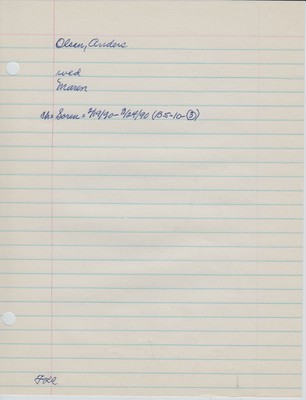 Olsen, Anders
wed
Maren
ch = Soren = 2/19/90 - 2/24/90 (B5-10-③)